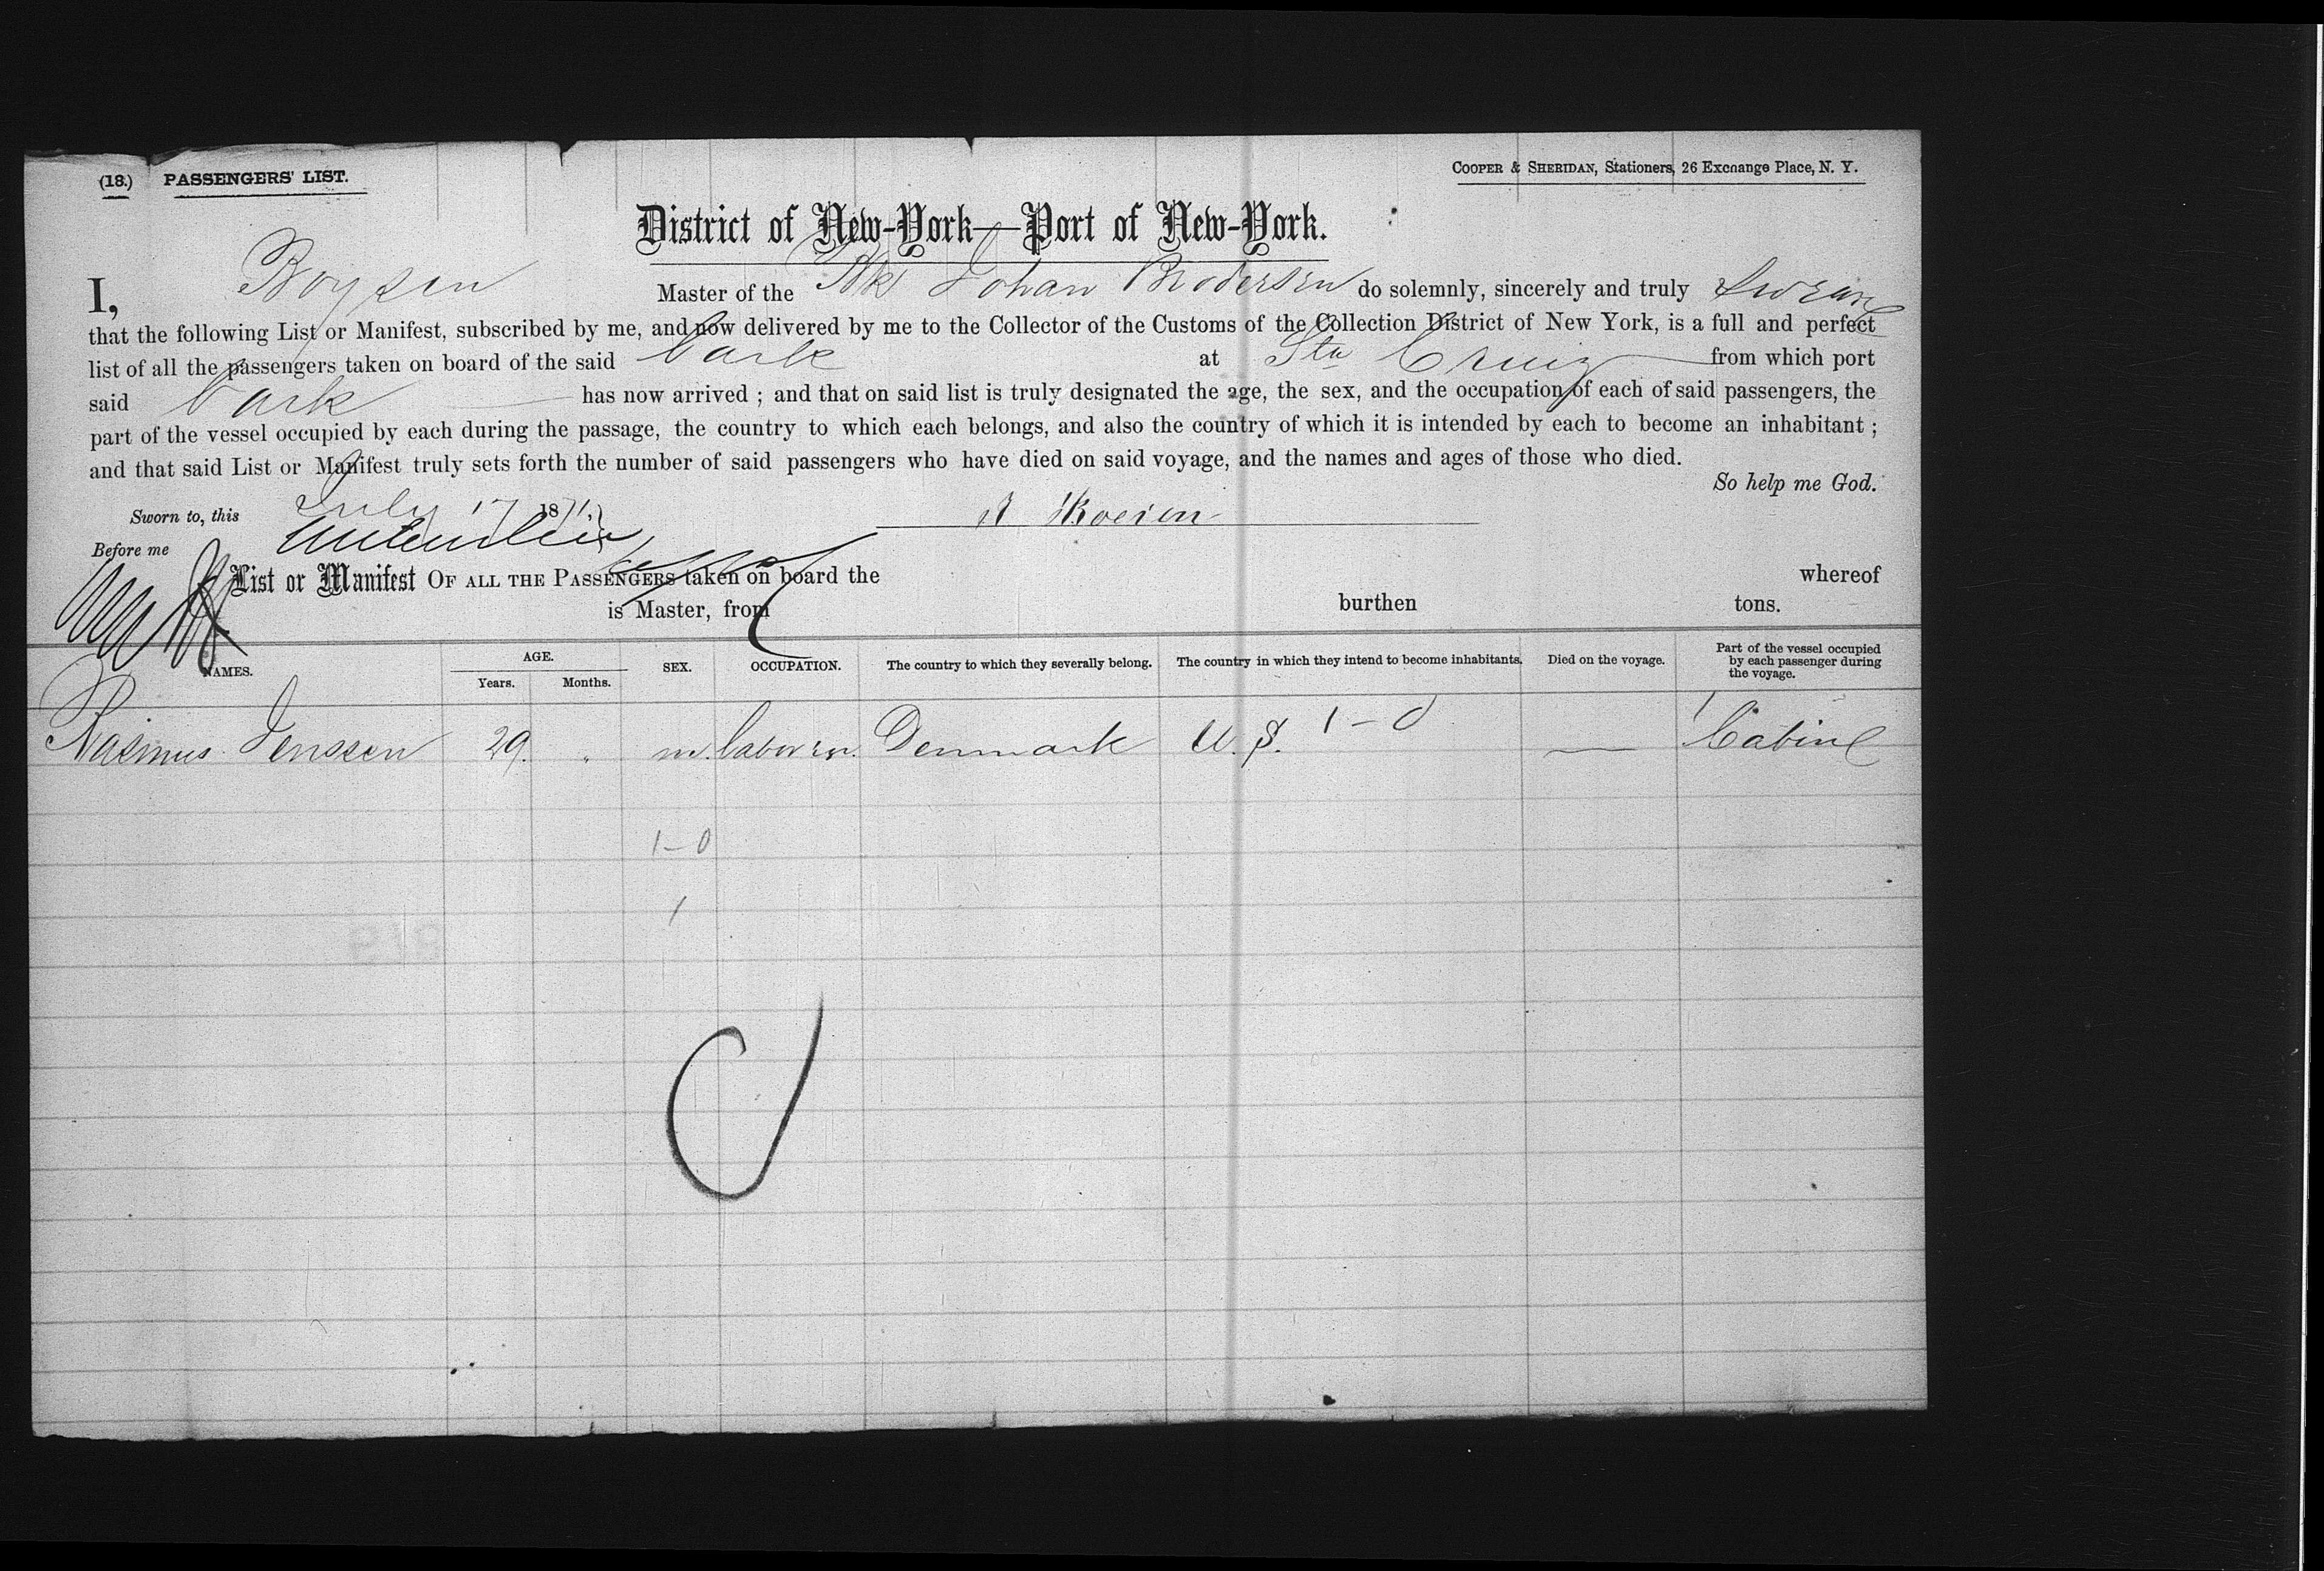 (18.) PASSENGERS' LIST.
COOPER & SHERIDAN, Stationers, 26 Exchange Place, N. Y.
District of New-York—Port of New-York.
I, Boysen Master of the Bk Johan Brodersen do solemnly, sincerely and truly swear
that the following List or Manifest, subscribed by me, and now delivered by me to the Collector of the Customs of the Collection District of New York, is a full and perfect
list of all the passengers taken on board of the said bark at Sta Cruiz from which port
said bark has now arrived ; and that on said list is truly designated the age, the sex, and the occupation of each of said passengers, the
part of the vessel occupied by each during the passage, the country to which each belongs, and also the country of which it is intended by each to become an inhabitant ;
and that said List or Manifest truly sets forth the number of said passengers who have died on said voyage, and the names and ages of those who died.
So help me God.
Sworn to, this July 17 1871,
Before me
List or Manifest OF ALL THE PASSENGERS taken on board the whereof
is Master, from burthen tons.
NAMES. AGE. Years. Months. SEX. OCCUPATION. The country to which they severally belong. The country in which they intend to become inhabitants. Died on the voyage. Part of the vessel occupied by each passenger during the voyage.
Rasmus Jenssen 29. " m. labourer. Denmark U. S. 1–0 — 1 Cabine
1–0
1